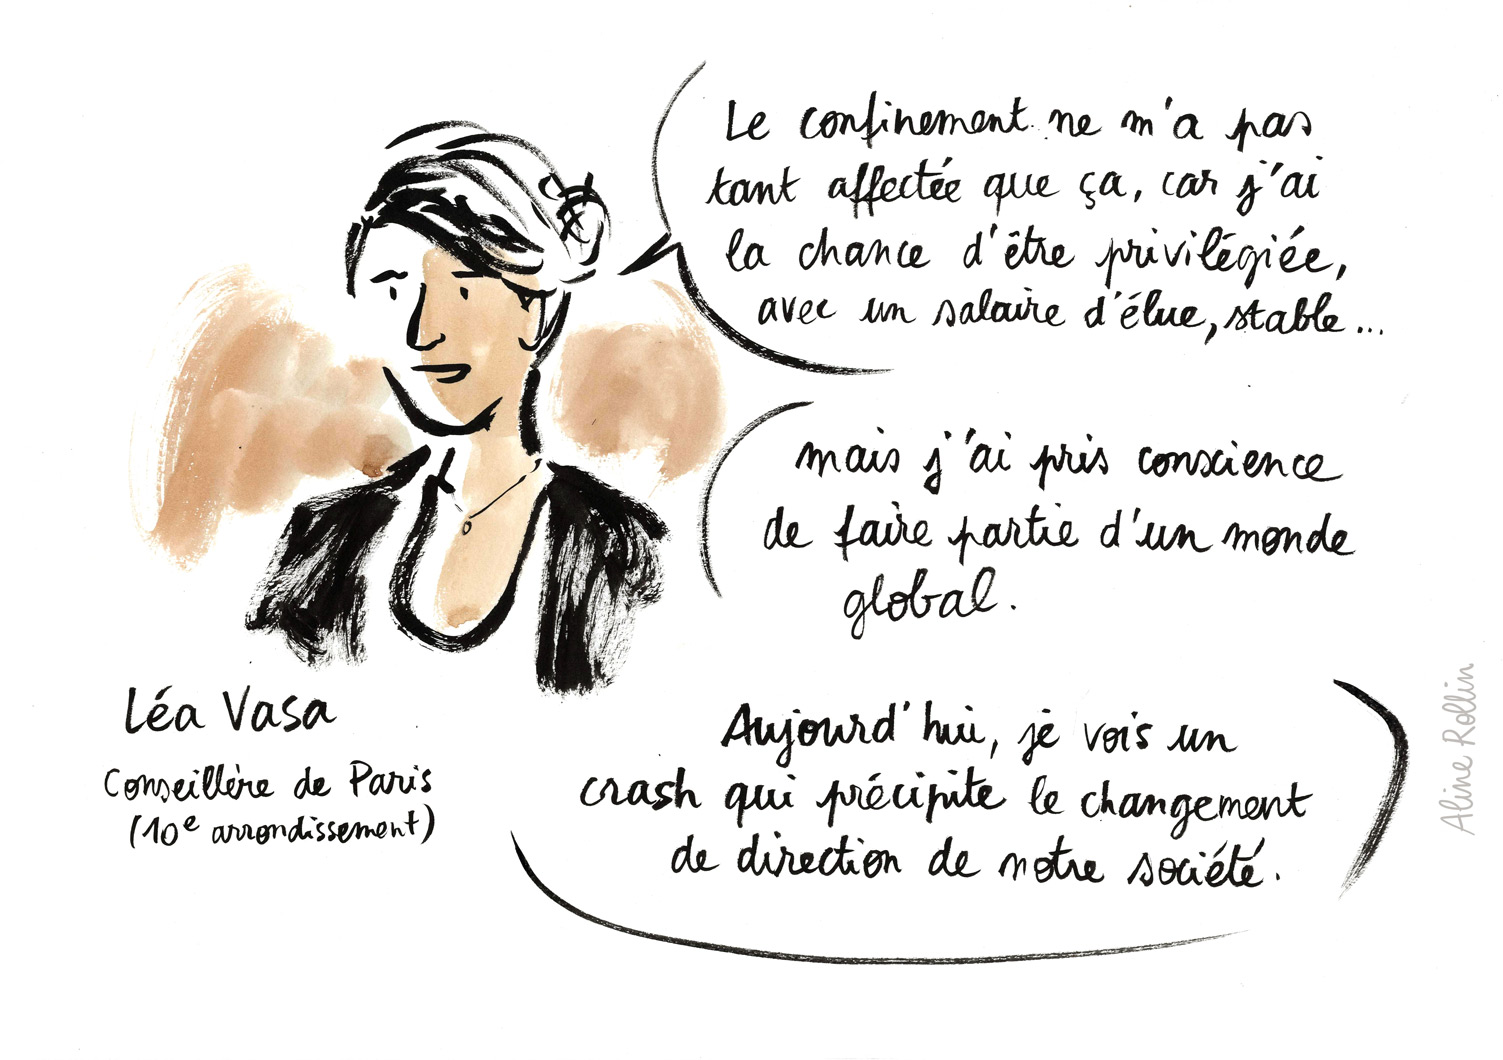 Le confinement ne m'a pas
tant affectée que ça, car j'ai
la chance d'être privilégiée,
avec un salaire d'élue, stable...
mais j'ai pris conscience
de faire partie d'un monde
global.
Aujourd'hui, je vois un
crash qui précipite le changement
de direction de notre société.
Léa Vasa
Conseillère de Paris
(10e arrondissement)
Aline Rollin